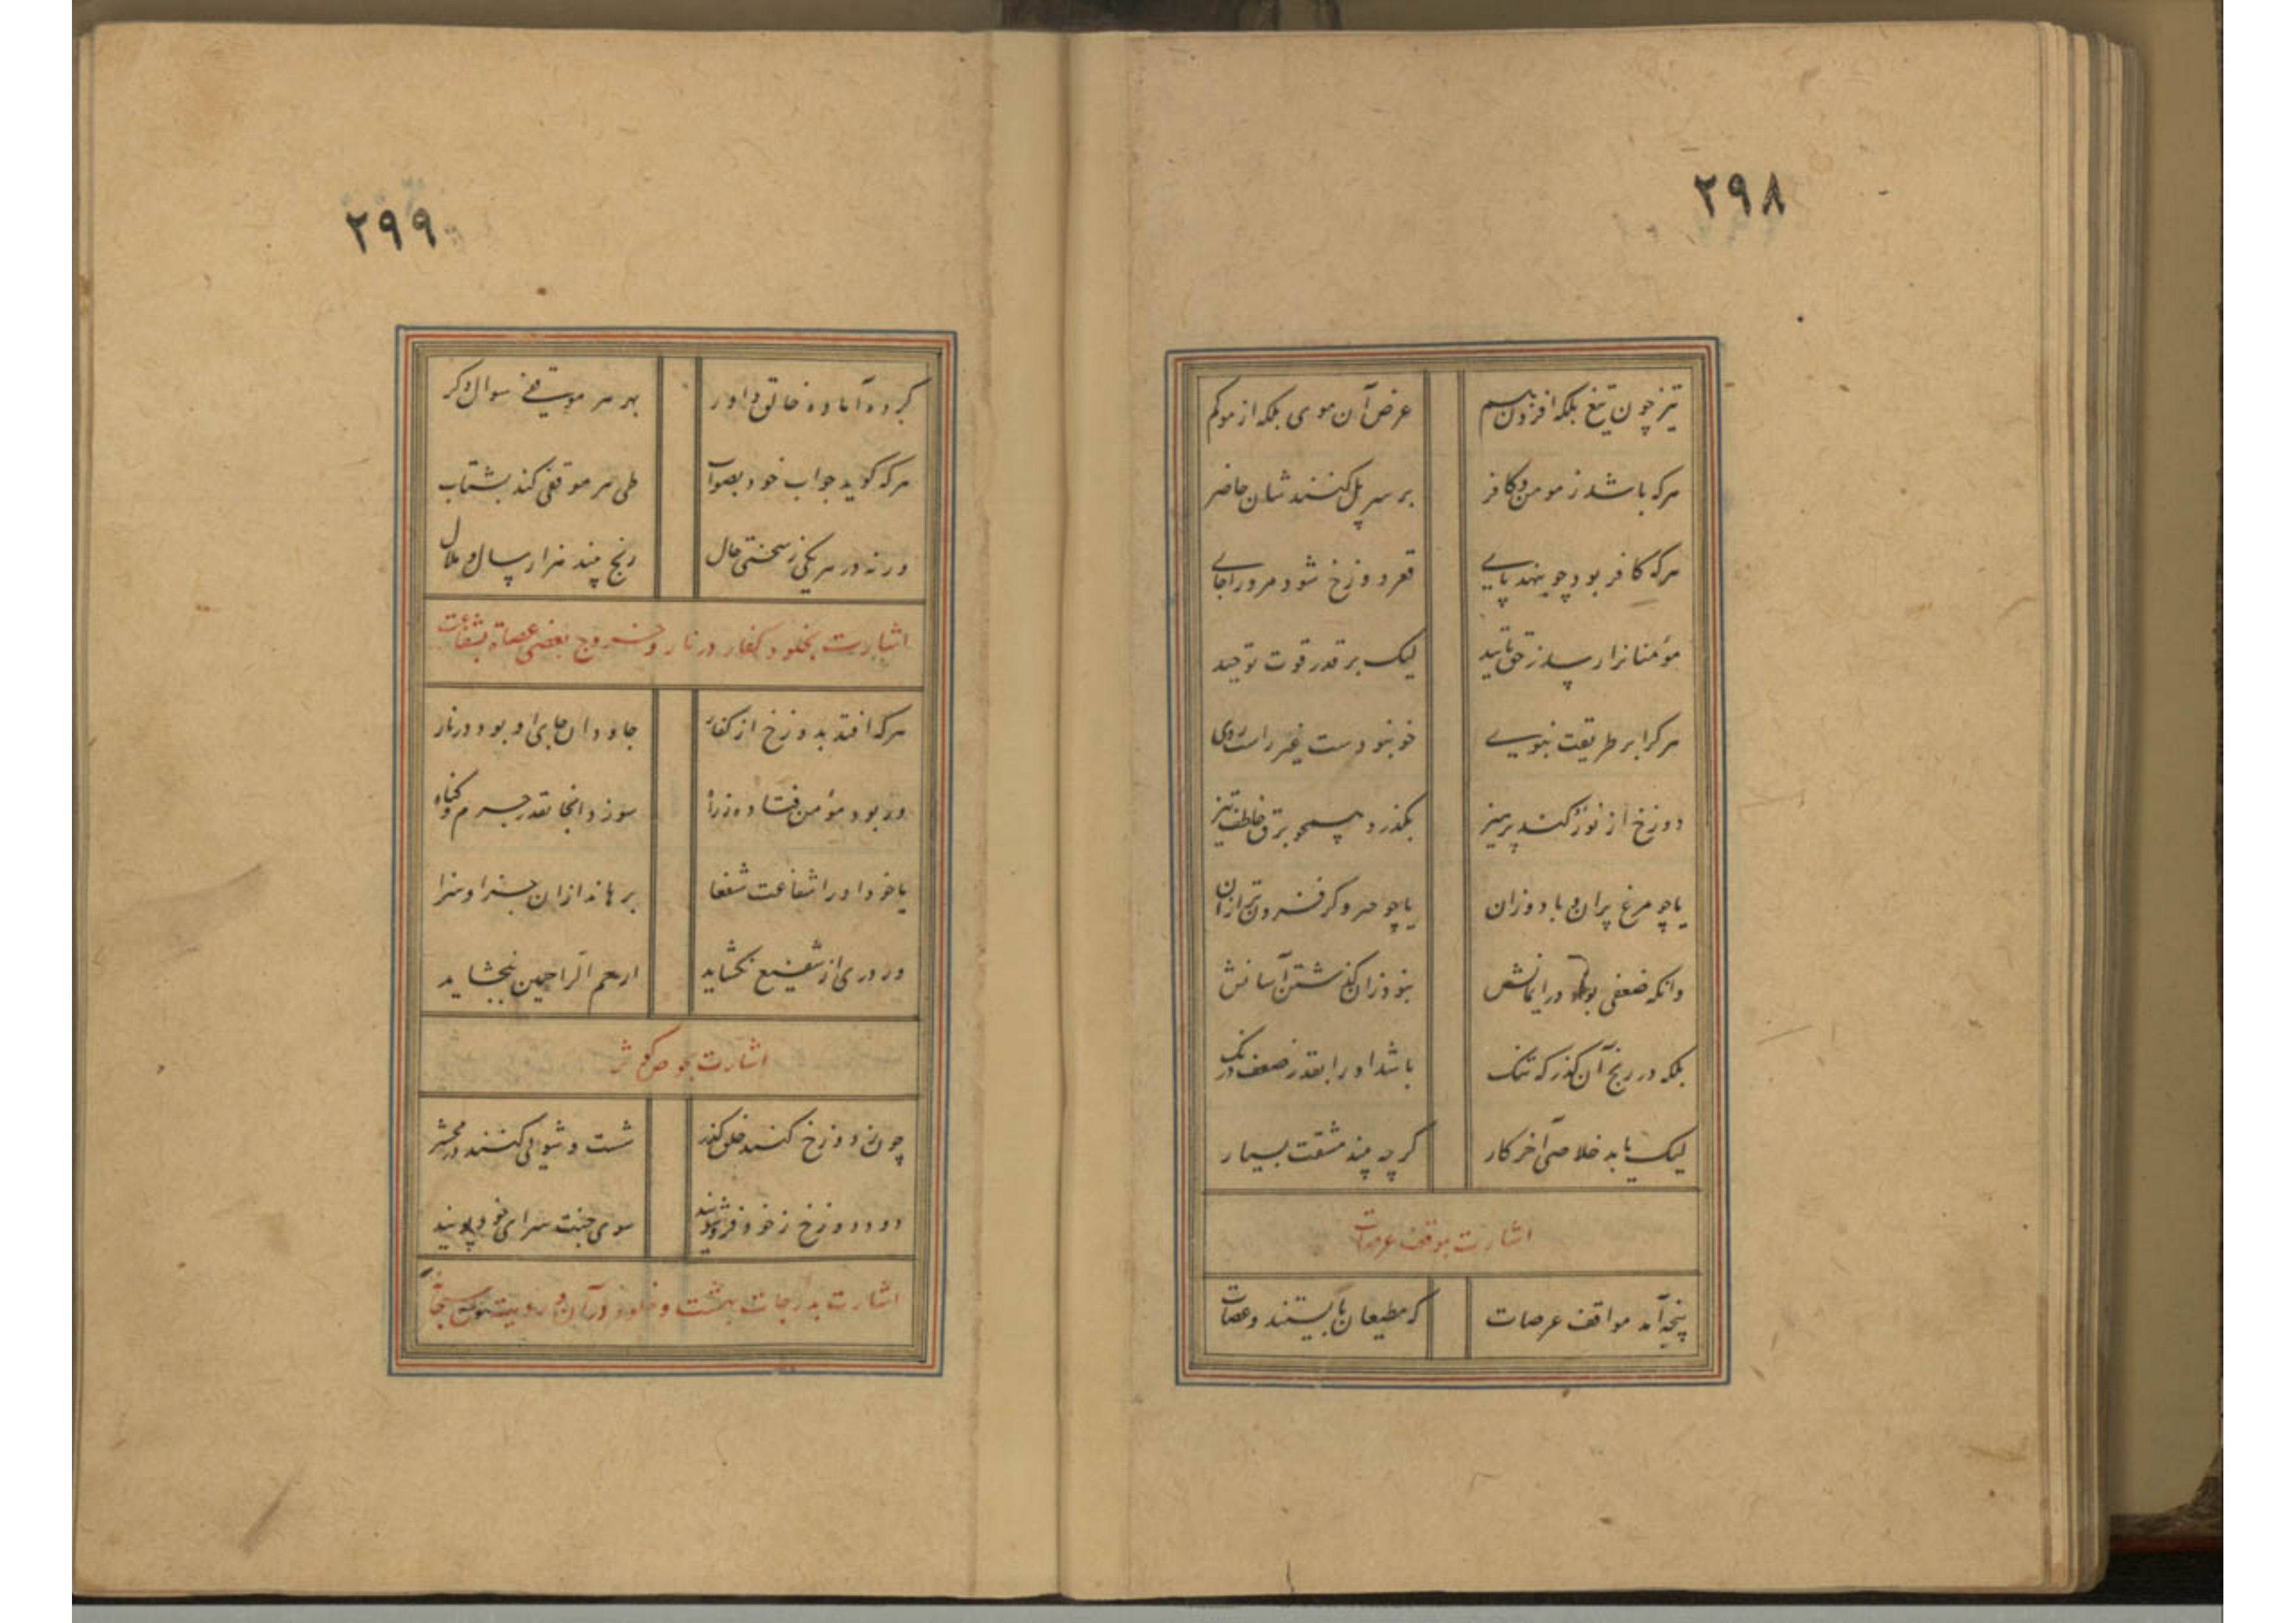 ۲۹۸
تیز چون تیغ بلکه افزون هم عرض آن موی بلکه از مو کم
هرکه باشد ز مومن و کافر بر سر پل کنندشان حاضر
هرکه کافر بود چو بنهد پای قعر دوزخ شود مرورا جای
مؤمنانرا رسد ز حق تایید لیک بر قدر قوت توحید
هرکرا بر طریقت نبوی خو نبودست غیر راست روی
دوزخ از نور کند پرهیز بگذرد همچو برق خاطف تیز
یا چو مرغ پران و باد وزان یا چو مرو کر فزون تر ازان
وانکه ضعفی بود در ایمانش نبود زان گذشتن آسانش
بلکه در رنج آن گذرگه تنگ باشد اورا بقدر ضعف درنگ
لیک یابد خلاصی آخر کار گرچه بیند مشقت بسیار
اشارت بموقف عرصات
پنجه آمد مواقف عرصات که مطیعان بایستند و عصات
۲۹۹
کرده آماده خالق داور بهر هر موقفی سوال دگر
هرکه گوید جواب خود بصواب طی هر موقفی کند بشتاب
ورنه در هر یکی ز سختی حال رنج بیند هزار سال و ملال
اشارت بخلود کفار در نار و خروج بعضی عصاة بشفاعت
هرکه افتد بدوزخ از کفار جاودان جای او بود در نار
ور بود مؤمن فتاده ز راه سوزد آنجا بقدر جرم و گناه
یا خود اورا شفاعت شفعا برهاند ازان جزا و سزا
ور دری از شفیع نگشاید ارحم الراحمین ببخشاید
اشارت بحوض کوثر
چون ز دوزخ کنند خلق گذر شست و شویی کنند در محشر
دود دوزخ ز خود فرو شویند سوی جنت سرای خود پویند
اشارت بدرجات بهشت و خلود در آن و رویت حق سبحانه